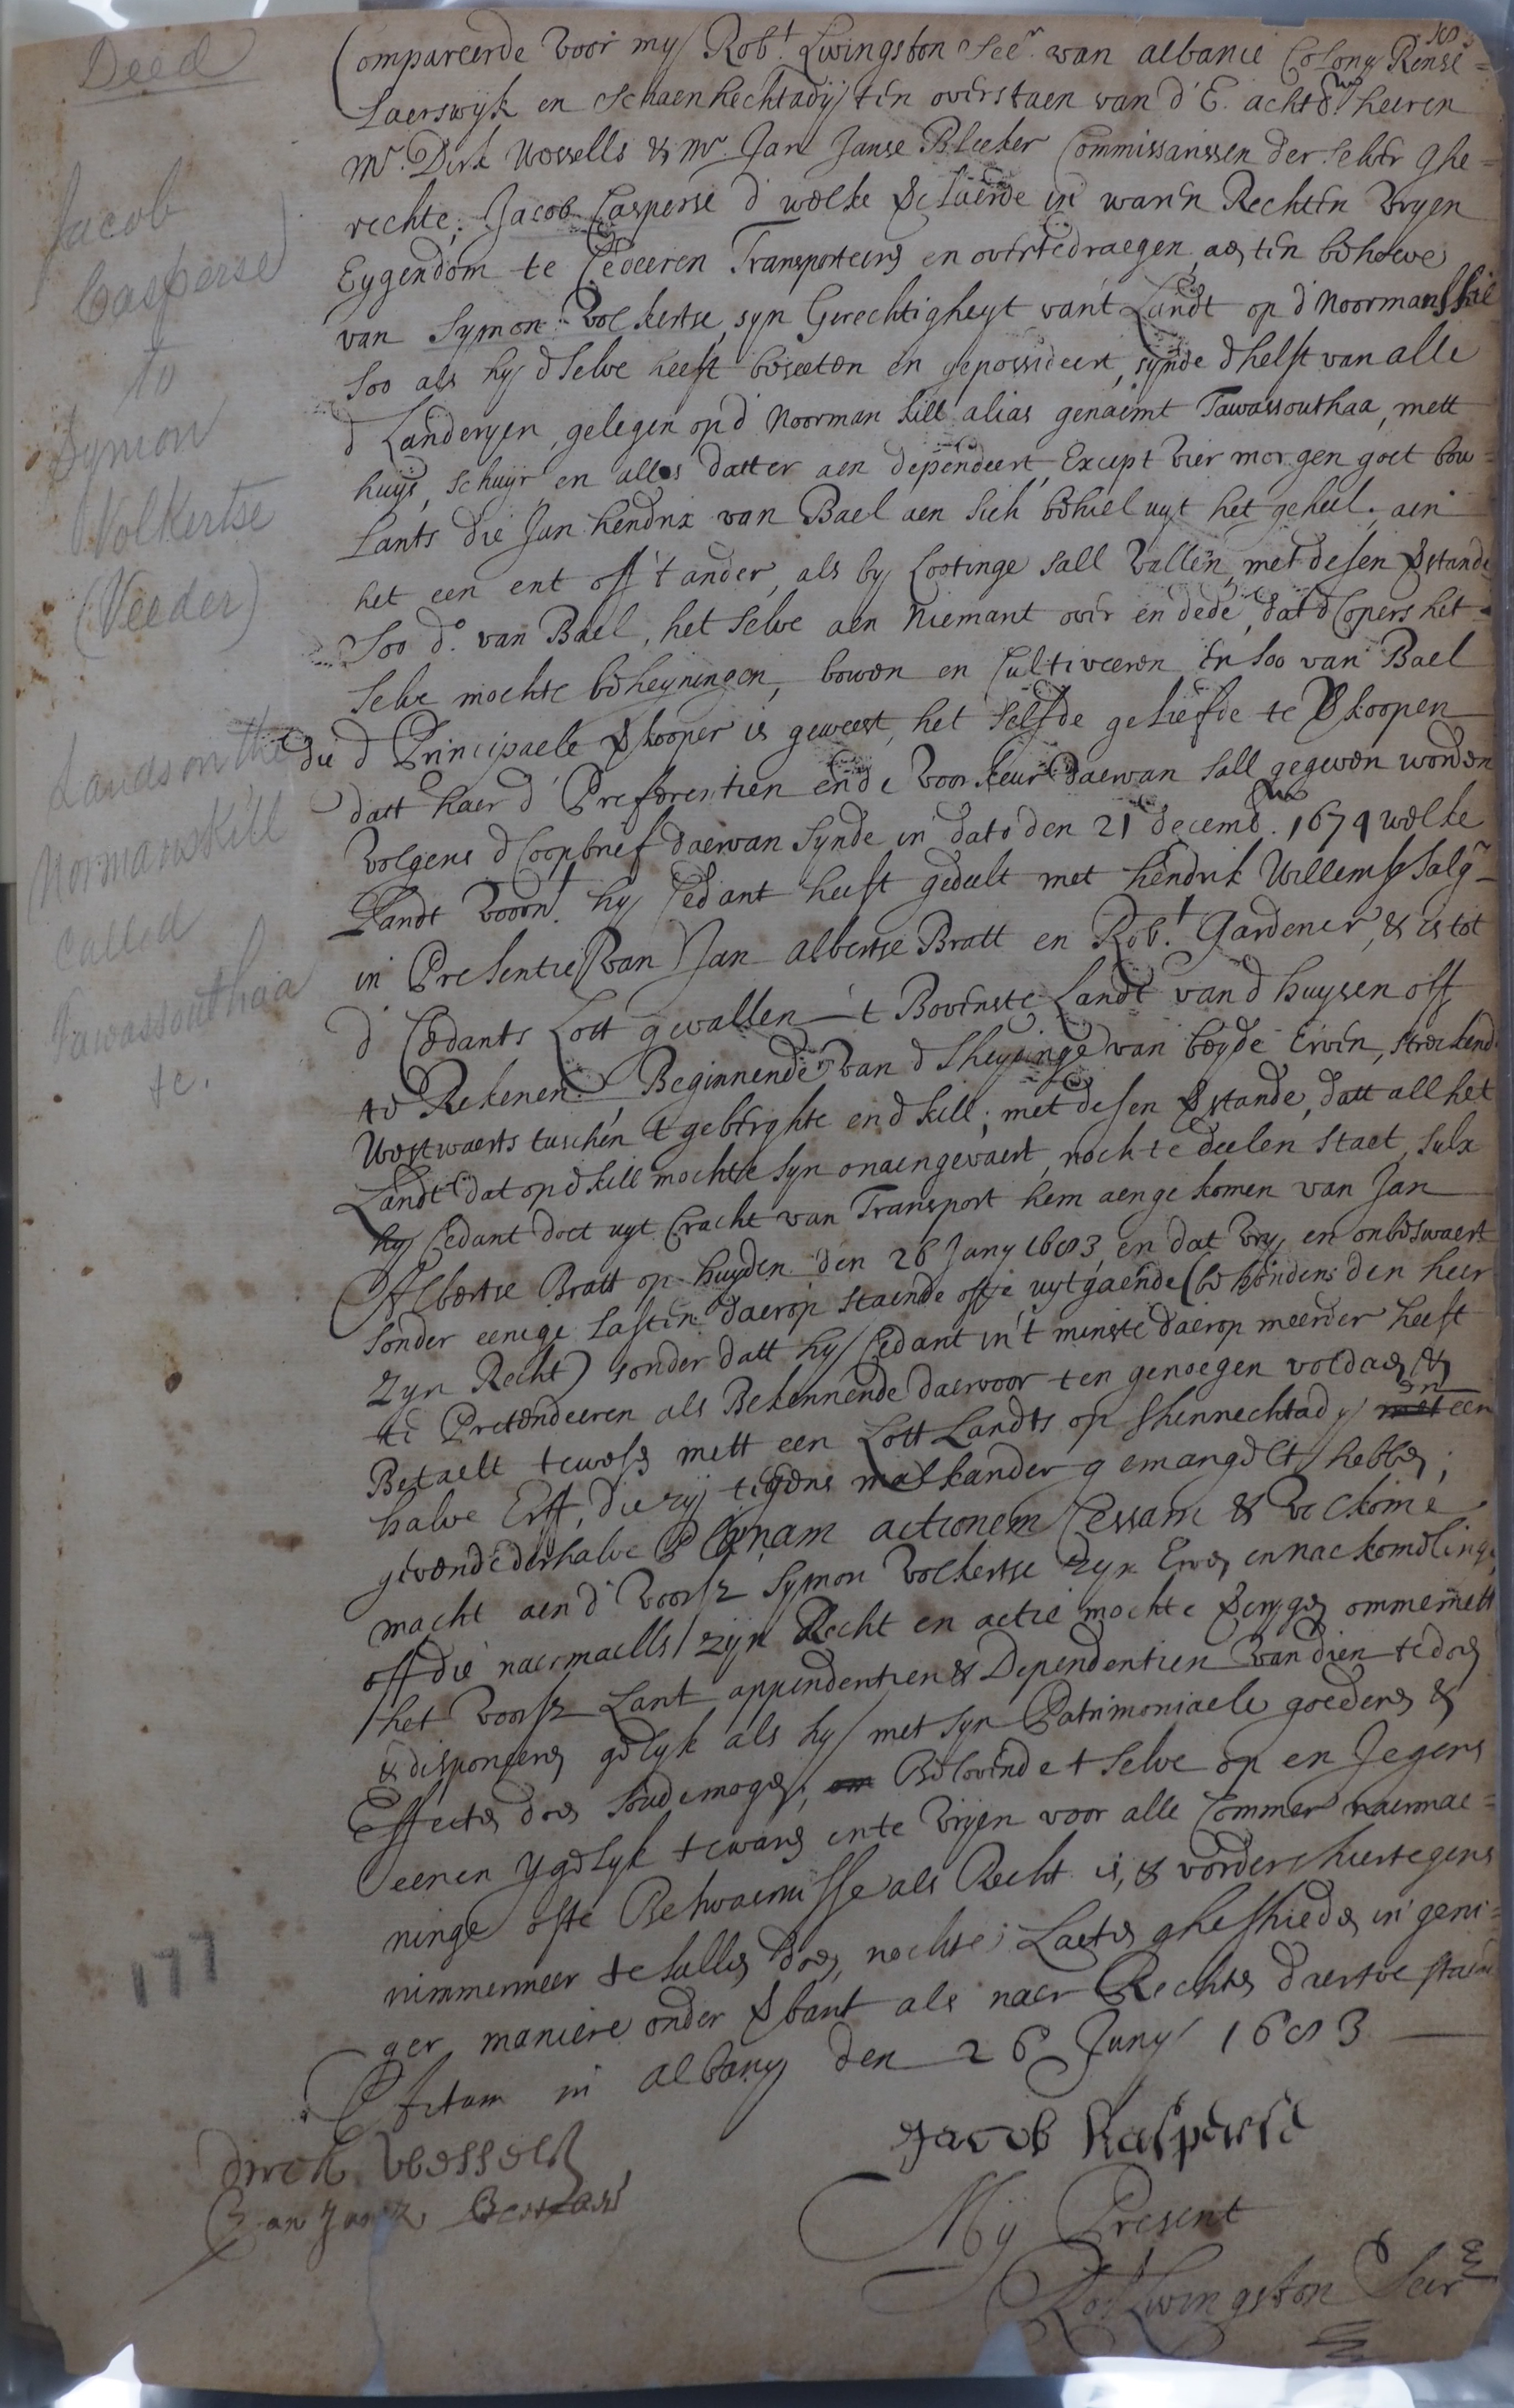 Deed
Jacob
Casperse
to
Symon
Volkertse
(Veeder)
Lands on the
Normanskill
called
Tawassouthaa
&c.
177
Compareerde voor my Robt. Livingston Secr. van albanie Colony Rense=
laerswyk en Schaenhechtady ten overstaen van d'E. achtb. heeren
Mr. Dirk Wessells & Mr. Jan Janse Bleeker Commissarissen der selver ghe=
rechte, Jacob Casperse d'welke verklaerde in waren Rechten vryen
Eygendom te Cedeeren Transporteeren en overtedraegen, aen ten behoeve
van Symon Volkertse, syn Gerechtigheyt van't Landt op d'Noormanskil
soo als hy d'selve heeft beseeten en gepossideert, synde d'helft van alle
d'Landeryen, gelegen op d'Noorman kill alias genaemt Tawassouthaa, mett
huys, schuyr en alles datter aen dependeert, Except vier morgen goet bow=
Lants die Jan hendrix van Bael aen sich behiel uyt het geheel, aen
het een ent off 't ander, als by Lootinge sall vallen, met desen verstande
Soo do. van Bael, het selve aen Niemant over en dede, dat d'Copers het
selve mochte beheyningen, bowen en Cultiveeren En soo van Bael
die d'Principaele verkooper is geweest, het selfde geliefde te verkoopen
datt haer d'Preferentien ende voorkeur daervan sall gegeven worden
volgens d'Coopbrief daervan synde in dato den 21 decemb. 1674 welke
Landt voorn. hy Cedant heeft gedeelt met hendrik Willemse salgr.
in Presentie van Jan albertse Bratt en Robt. Gardener, & is tot
d'Cedants Lott gevallen 't Bovenste Landt van d'huysen off
te Rekenen. Beginnende van d'sheyinge van beyde Erven, streckende
Westwaerts tuschen 't geberghte en d'kill; met desen verstande, datt all het
Landt dat op d'kill mochte syn onaengevaert, noch te deelen staet, sulx
hy Cedant doet uyt Cracht van Transport hem aengekomen van Jan
Albertse Bratt op huyden den 26 Juny 1683, en dat vry en onbeswaert
sonder eenige Lasten daerop staende ofte uytgaende (behoudens den heer
zyn Recht) sonder datt hy Cedant in't minste daerop meerder heeft
te Pretendeeren als Bekennende daervoor ten genoegen voldaen &
Betaelt te wesen mett een Lott Landts op Shennechtady en een
halve Erff, die zy tegens malkander gemangelt hebben;
gevende derhalve Plenam actionem Cessam & volkome
macht aen d'voorsz Symon Volkertse zyn Erven en nackomelinge,
off die naermaells zyn Recht en actie mochte verkrygen omme mett
het voorsz Lant, appendentien & Dependentien van dien te doen
& disponeeren gelyk als hy met syn Patrimoniaele goederen &
Effecten doen soude mogen; Belovende 't selve op en Jegens
eenen ygelyk te waren en te vryen voor alle Commer naemae=
ninge ofte Beswaernisse als Recht is, & vorders hiertegens
nimmermeer te sullen doen, nochte Laeten gheshieden in geni=
ger maniere onder verbant als naer Rechten daertoe staende
Actum in albany den 26 Juny 1683
Jacob Kasperse
Dirck Wessells
Jan Jansz Bleeker
My Present
Ro: Livingston Secr